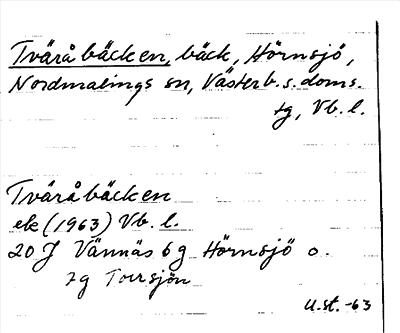 Tväråbäcken, bäck, Hörnsjö,
Nordmalings sn, Västerb. s. doms.
tg, Vb. l.
Tväråbäcken
ek (1963) Vb. l.
20 J Vännäs 6 g Hörnsjö o.
7g Torrsjön
U.st. -63